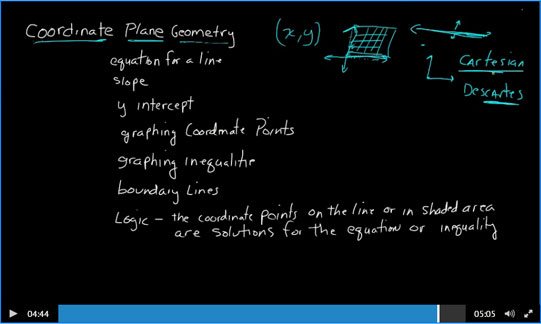 Coordinate Plane Geometry
(x,y)
Cartesian
Descartes
equation for a line
slope
y intercept
graphing Coordinate Points
graphing inequalitie
boundary Lines
Logic – the coordinate points on the line or in shaded area
are solutions for the equation or inequality
04:44
05:05